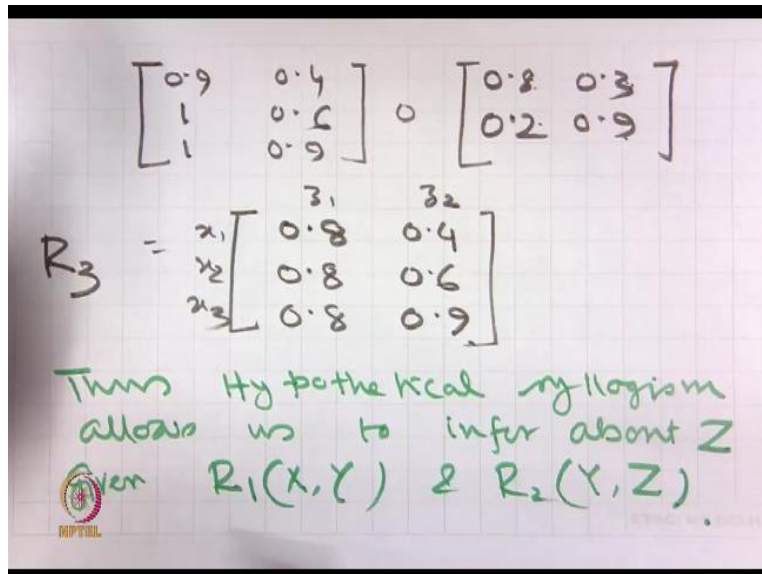 0.9 0.4 0.8 0.3
1 0.6 o 0.2 0.9
1 0.9
z1 z2
R3 = x1 0.8 0.4
x2 0.8 0.6
x3 0.8 0.9
Thus Hypothetical syllogism
allows us to infer about Z
Given R1(X, Y) & R2(Y, Z).
NPTEL